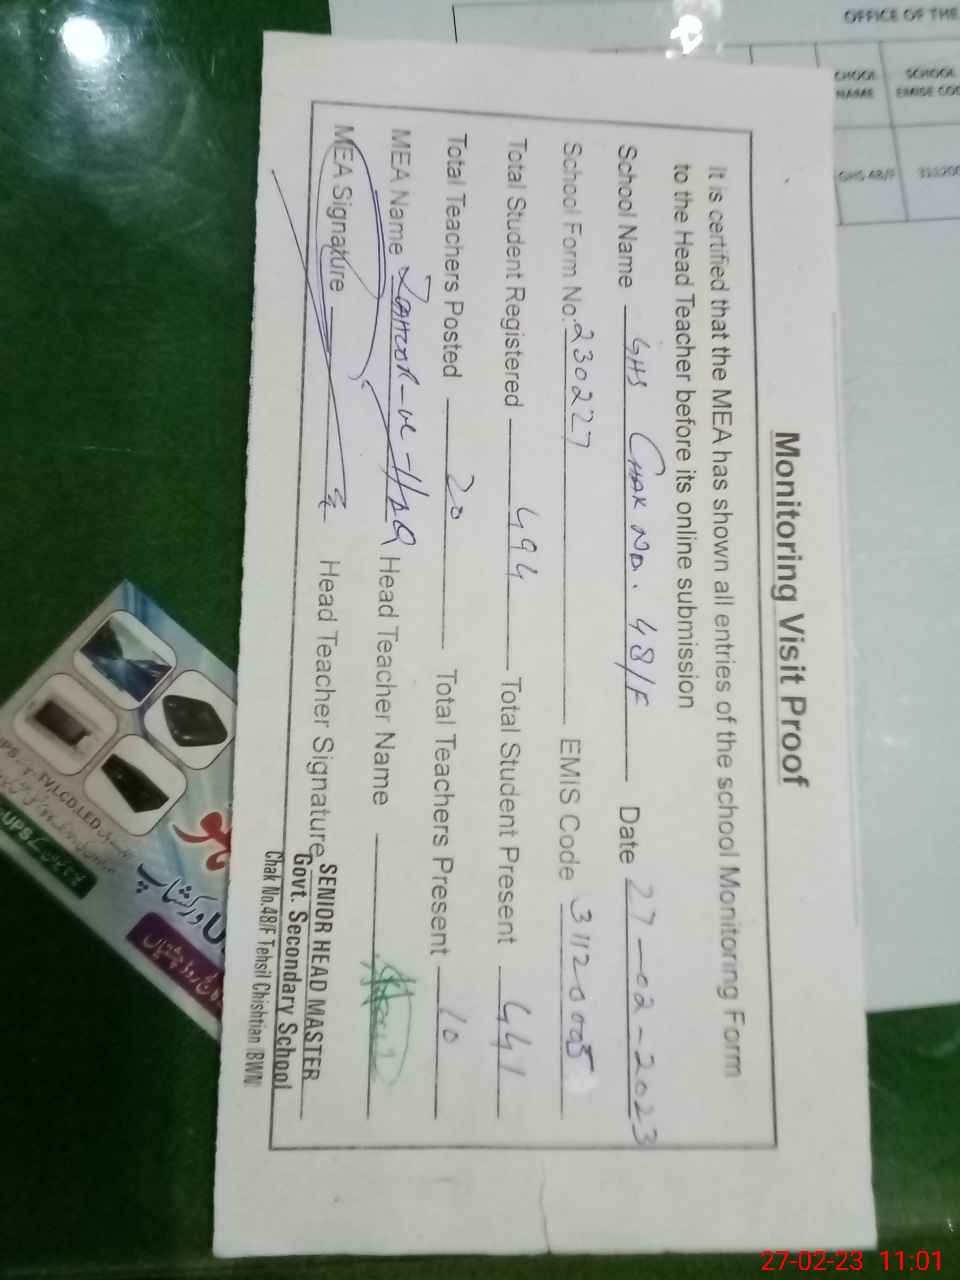 Monitoring Visit Proof
It is certified that the MEA has shown all entries of the school Monitoring Form
to the Head Teacher before its online submission
School Name GHS CHAK NO. 48/F Date 27-02-2023
School Form No: 230227 EMIS Code 31120005
Total Student Registered 494 Total Student Present 441
Total Teachers Posted 20 Total Teachers Present 10
MEA Name ZAHOOR-UL-HAQ Head Teacher Name
MEA Signature Head Teacher Signature
SENIOR HEAD MASTER
Govt. Secondary School
Chak No.48/F Tehsil Chishtian (BWN)
OFFICE OF THE
SCHOOL NAME
SCHOOL
EMISE COD
GHS 48/F
TV,LCD,LED
UPS
ورکشاپ
27-02-23 11:01